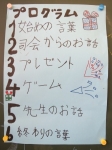 プログラム
1 始めの言葉
2 司会からのお話
3 プレゼント
4 ゲーム
5 先生のお話
6 終わりの言葉